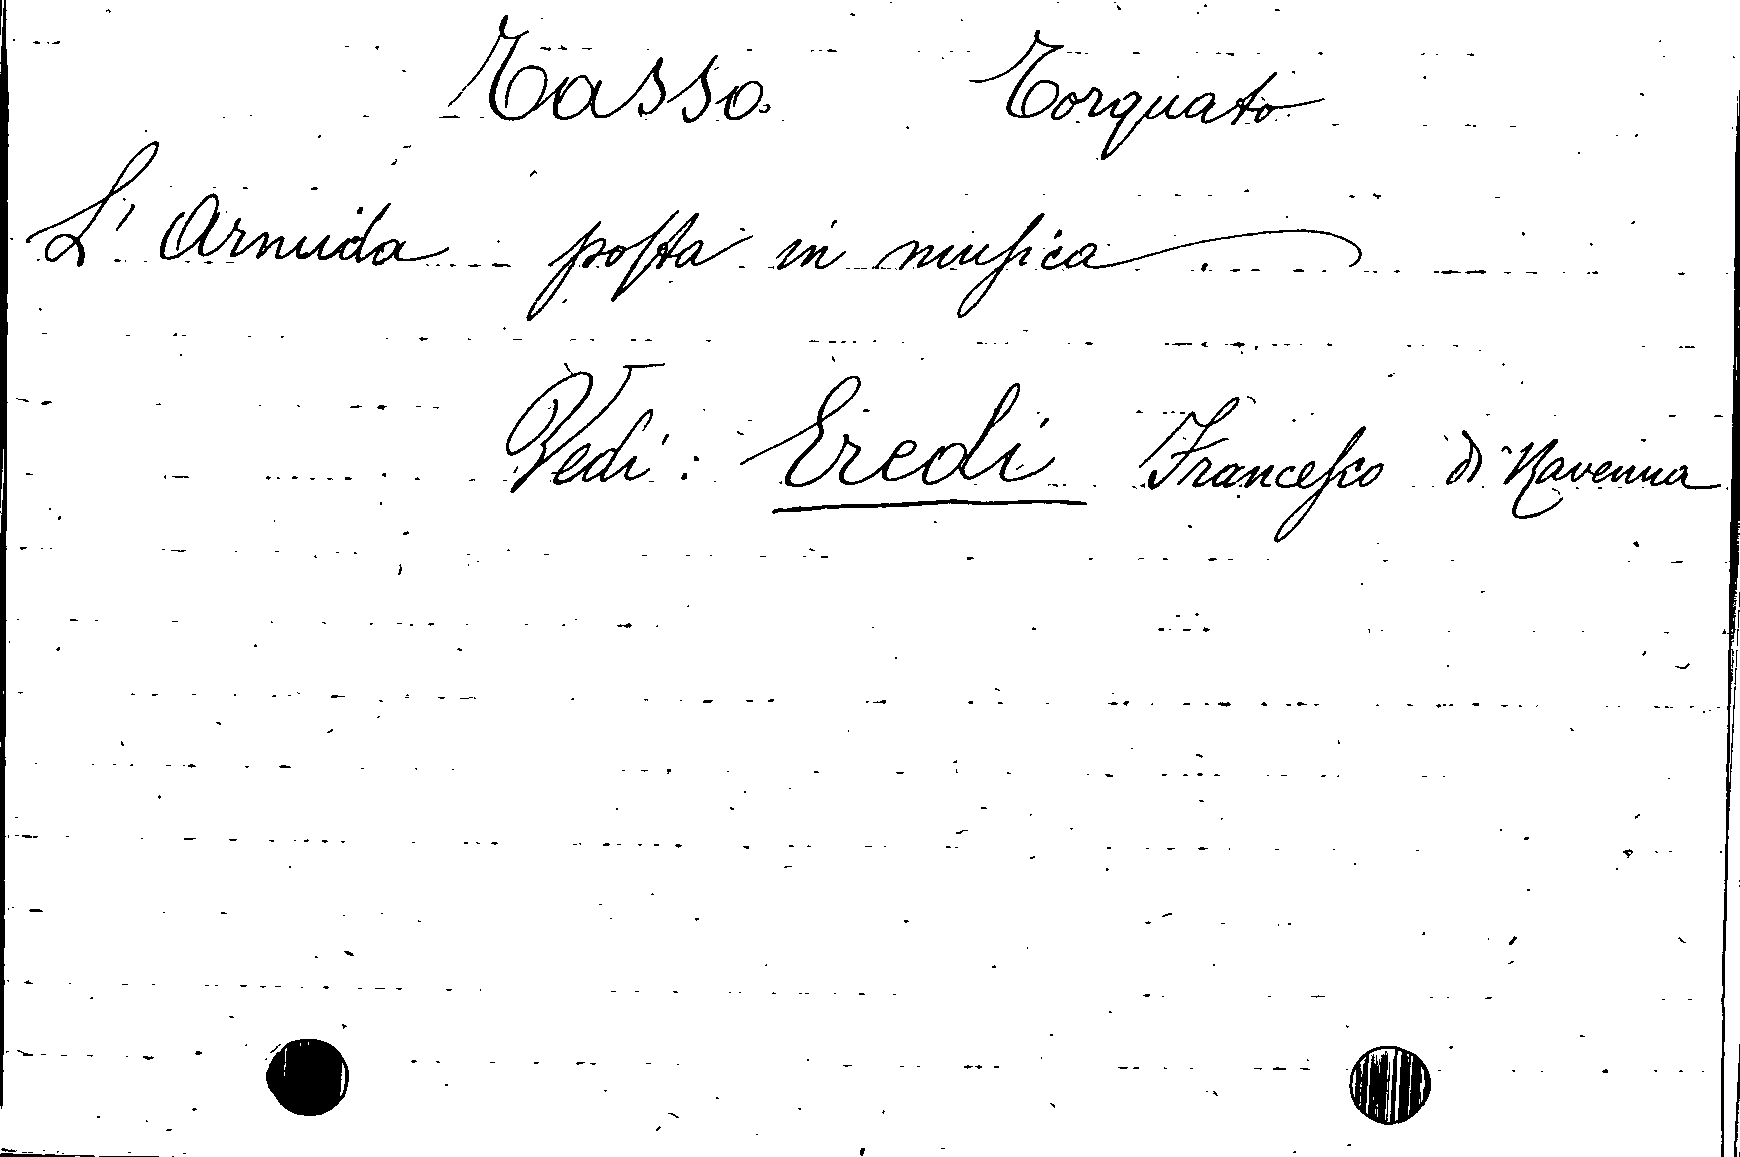 Tasso Torquato
L' Armida poſta in muſica
Vedi: Eredi Franceſco di Ravenna